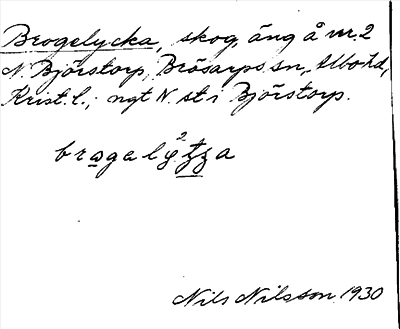 Brogelycka, skog, äng å nr. 2
N. Björstorp, Brösarps sn., Albo hd,
Krist. l.; ngt N. st i Björstorp.
Nils Nilsson 1930